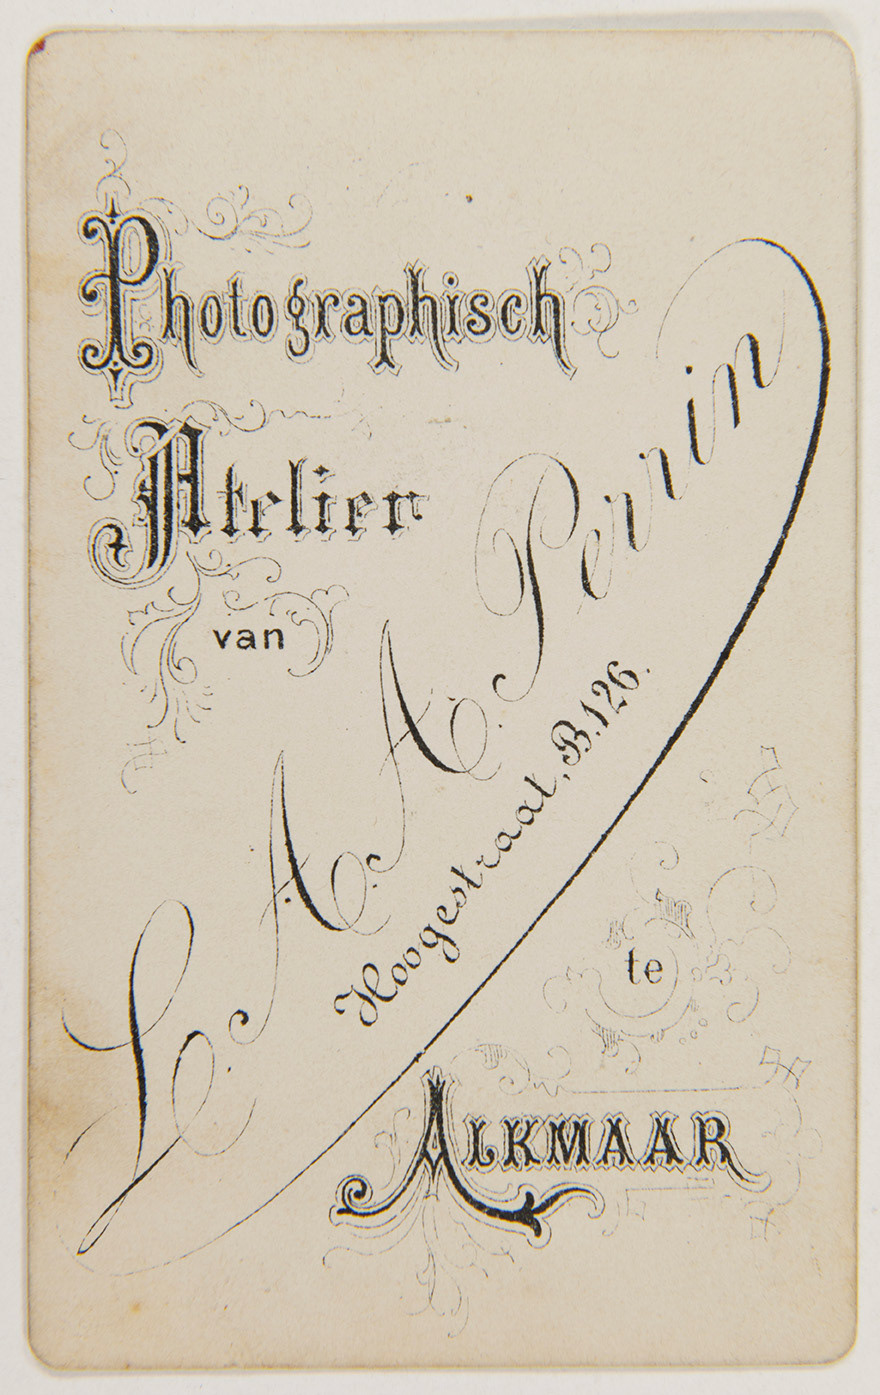 Photographisch
Atelier
van
L. A. A. Perrin
Hoogestraat, B. 126.
te
ALKMAAR